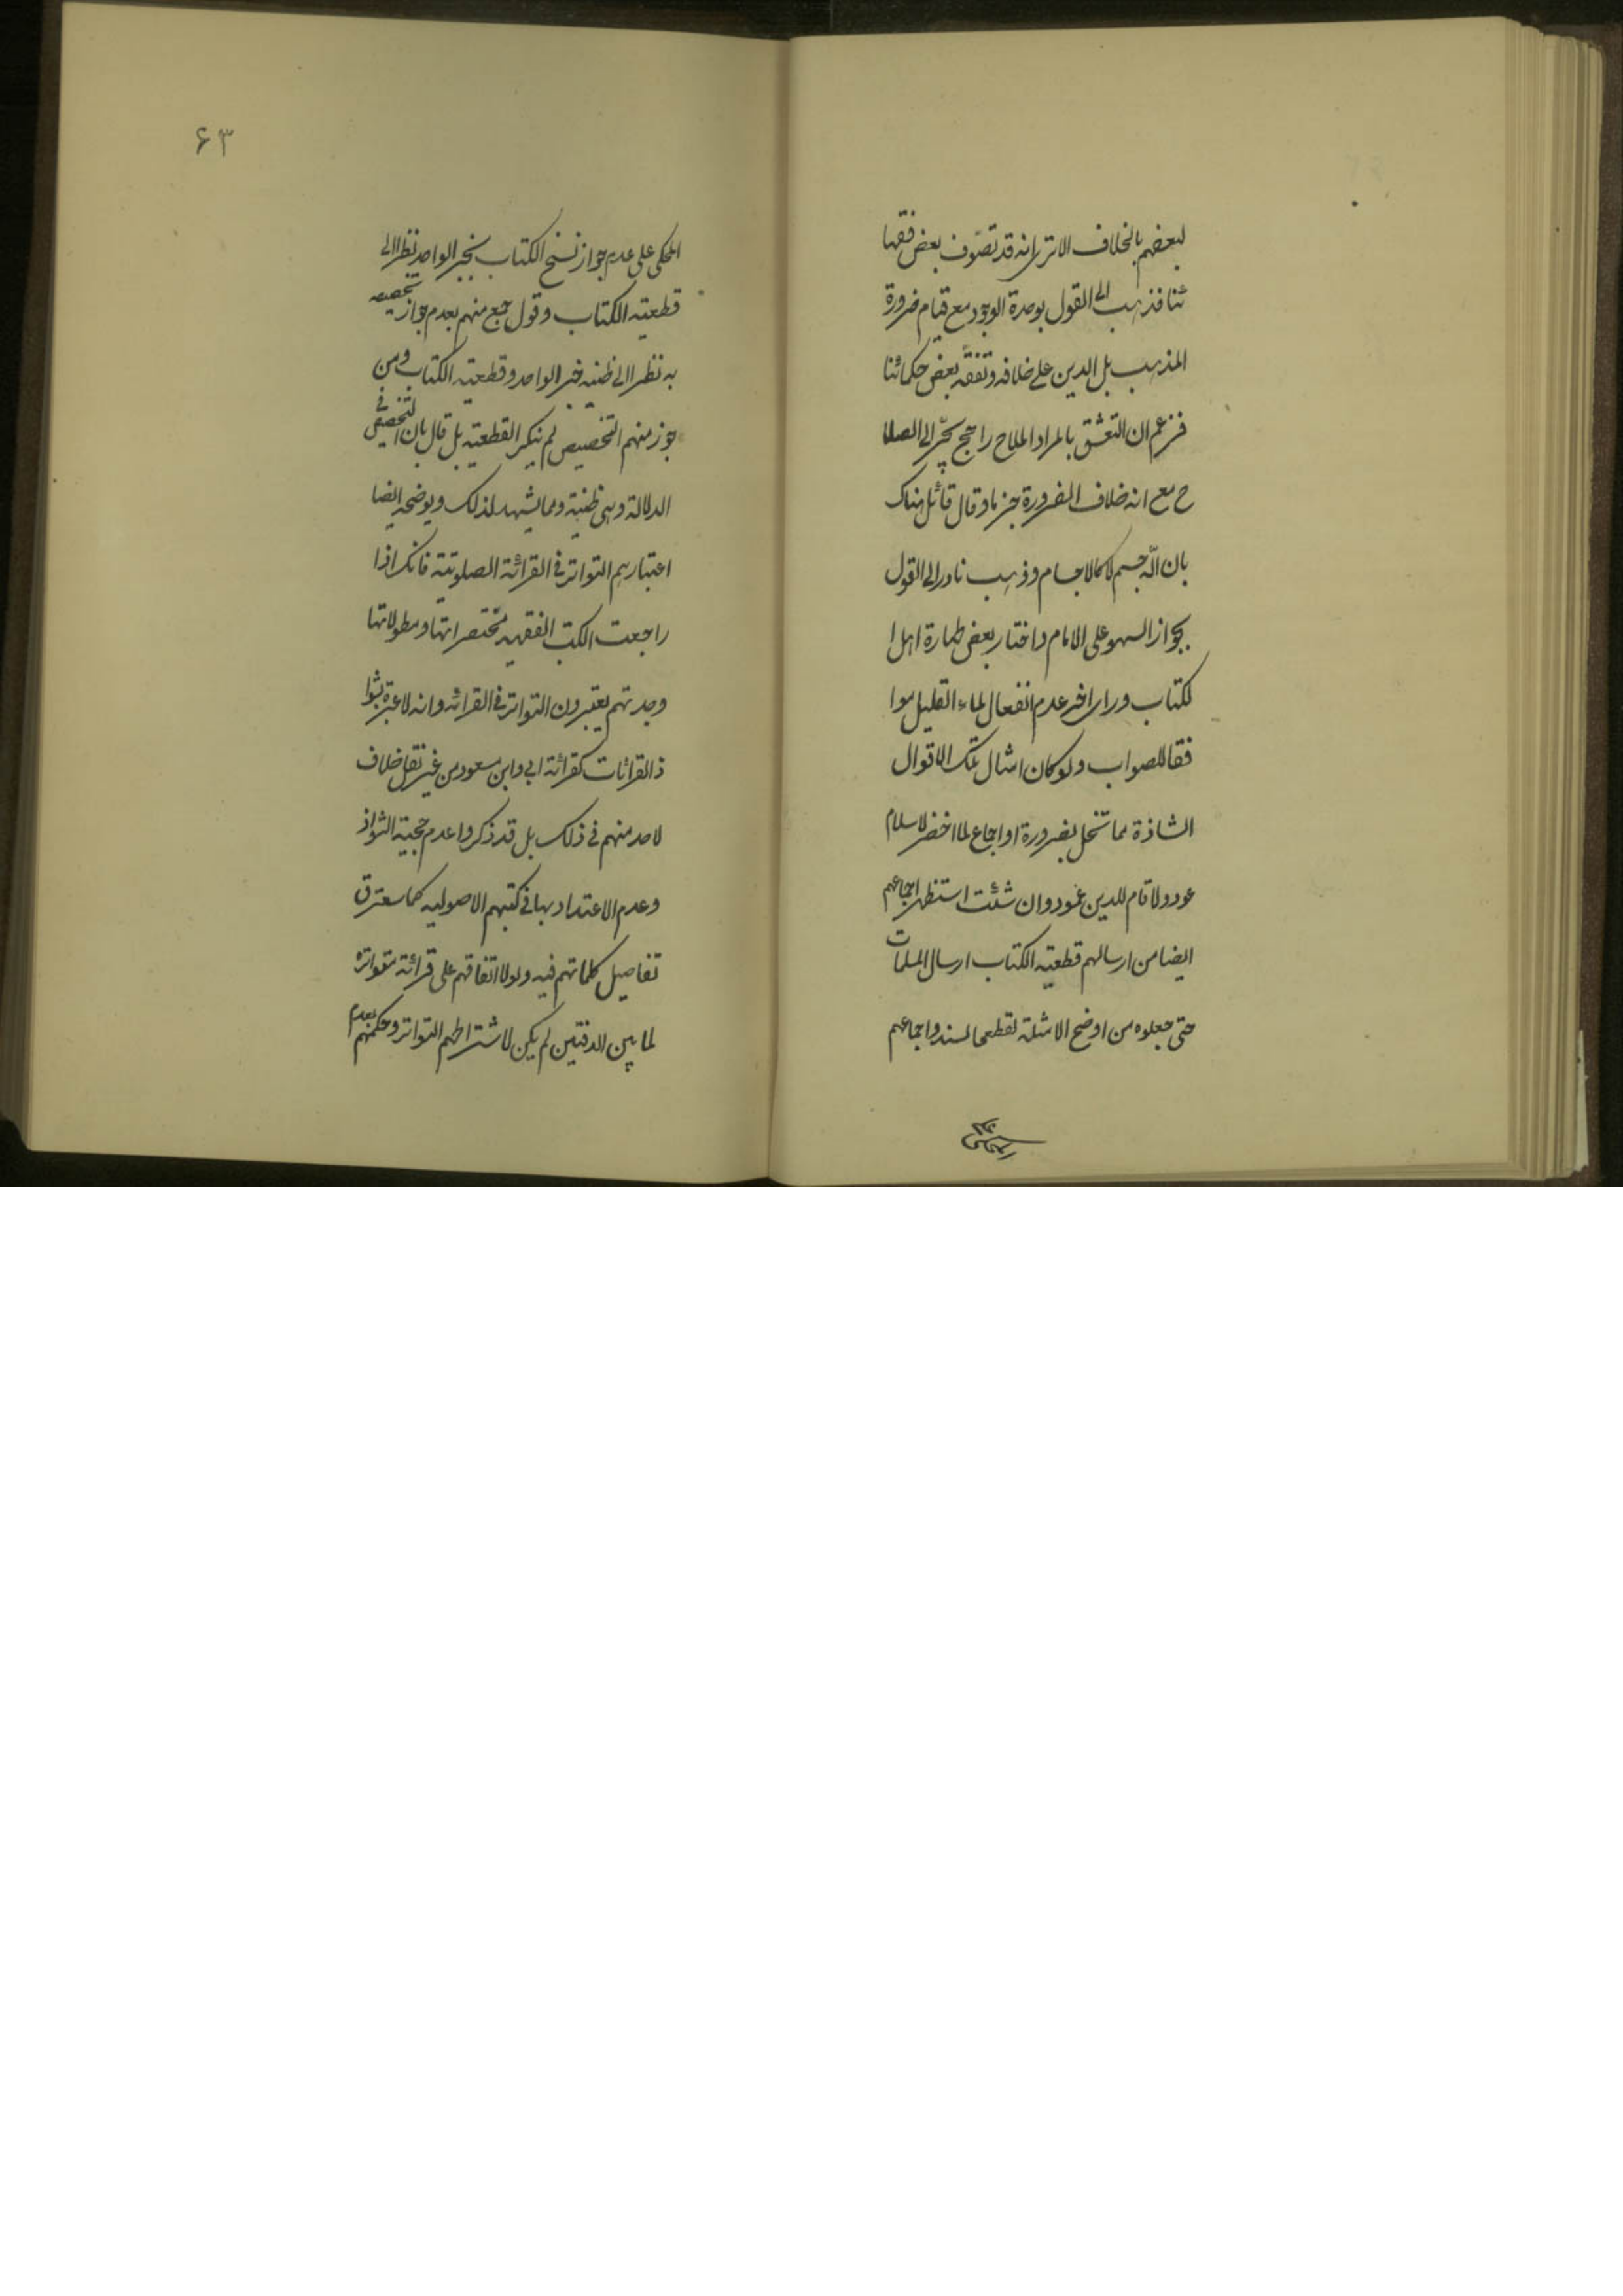 لبعضهم بالخلاف الا ترى انه قد تصوف بعض فقها
ئنا فذهب الى القول بوحدة الوجود مع قيام ضرورة
المذهب بل الدين على خلافه وتفقه بعض حكمائنا
فزعم ان التعشق بالمراد الملاح راجح يجر الى الصلا
ح مع انه خلاف الضرورة جزما وقال قائل هناك
بان الله جسم لا كالاجسام وذهب نادر الى القول
بجواز السهو على الامام واختار بعض طهارة اهل ا
لكتاب وراى اخر عدم انفعال الماء القليل موا
فقا للصواب ولو كان امثال تلك الاقوال
الشاذة مما تخل بضرورة او اجماع لما اخضر للاسلام
عود ولا قام للدين عمود وان شئت استظهر اجماعهم
ايضا من ارسالهم قطعية الكتاب ارسال المسلمات
حتى جعلوه من اوضح الامثلة لقطعى السند واجماعهم
۶۳
المحكى على عدم جواز نسخ الكتاب بخبر الواحد نظرا الى
قطعية الكتاب وقول جمع منهم بعدم جواز تخصيصه
به نظرا الى ظنية خبر الواحد وقطعية الكتاب ومن
جوز منهم التخصيص لم ينكر القطعية بل قال بان التخصيص فى
الدلالة وهى ظنية ومما يشهد لذلك ويوضحه ايضا
اعتبارهم التواتر فى القرائة الصلوتية فانك اذا
راجعت الكتب الفقهيه مختصراتها ومطولاتها
وجدتهم يعتبرون التواتر فى القرائه وانه لا عبرة بشوا
ذ القرائات كقرائة ابى وابن مسعود من غير نقل خلاف
لاحد منهم فى ذلك بل قد ذكروا عدم حجية الشواذ
وعدم الاعتداد بها فى كتبهم الاصوليه كما ستعرف
تفاصيل كلماتهم فيه ولولا اتفاقهم على قرائة متواتره
لما بين الدفتين لم يكن لاشتراطهم التواتر وحكمهم بعدم